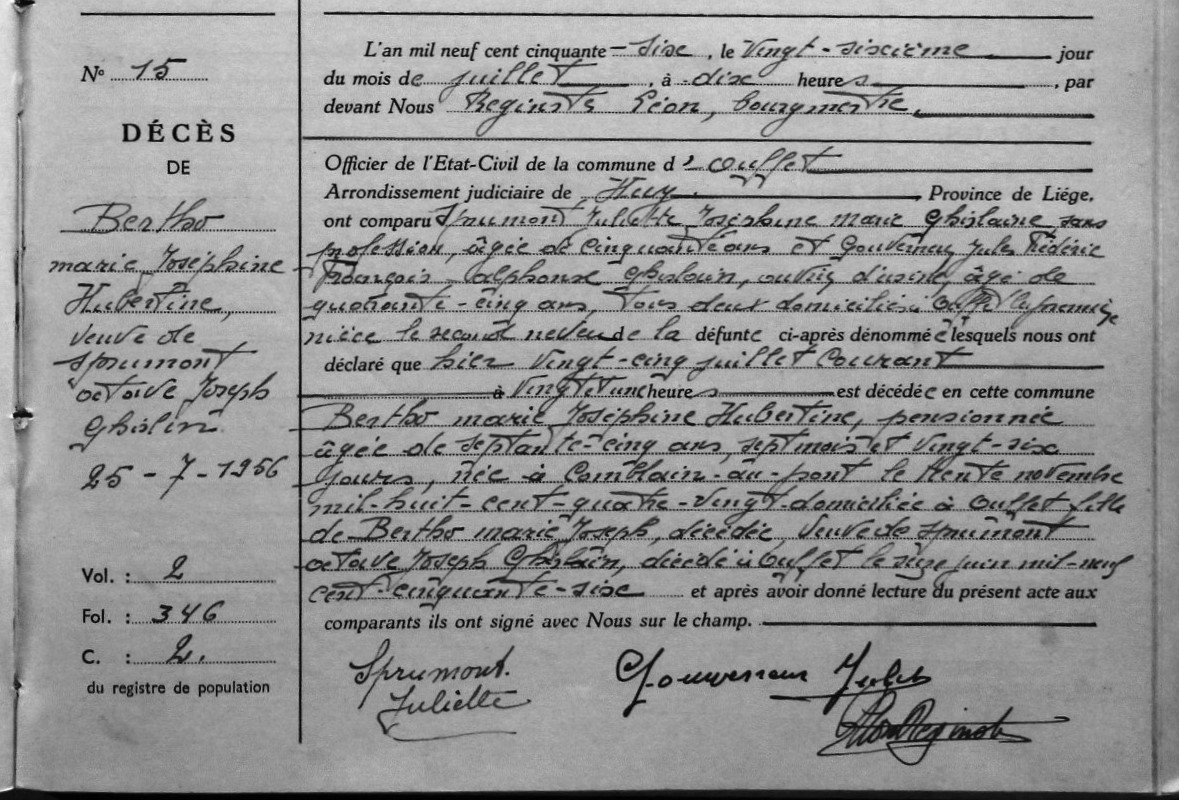 N° 15
DÉCÈS
DE
Bertho
marie Joséphine
Hubertine,
veuve de
Sprumont
octave Joseph
Ghislin
25 - 7 - 1956
Vol. : 2
Fol. : 346
C. : 2.
du registre de population
L'an mil neuf cent cinquante - six , le Vingt - sixième jour
du mois de juillet , à dix heures , par
devant Nous Reginster Léon, bourgmestre,
Officier de l'Etat-Civil de la commune d' Ouffet
Arrondissement judiciaire de Huy. , Province de Liége,
ont comparu Sprumont Juliette Joséphine marie Ghislaine sans
profession, âgée de cinquante ans et Gouverneur Jules Frédéric
François alphonse Ghislain, ouvrier d'usine, âgé de
quarante-cinq ans, tous deux domiciliés à Ouffet la première
nièce le second neveu de la défunte ci-après dénommée lesquels nous ont
déclaré que hier vingt-cinq juillet courant
à Vingt et une heures est décédée en cette commune
Bertho marie Joséphine Hubertine, pensionnée
âgée de septante-cinq ans, sept mois et vingt-six
jours, née à Comblain-au-pont le trente novembre
mil-huit-cent-quatre-vingt domiciliée à Ouffet fille
de Bertho marie Joseph, décédée, veuve de Sprumont
octave Joseph Ghislain, décédé à Ouffet le juin mil-neuf
cent-cinquante-six et après avoir donné lecture du présent acte aux
comparants ils ont signé avec Nous sur le champ.
Sprumont.
Juliette
Gouverneur Jules
Léon Reginster